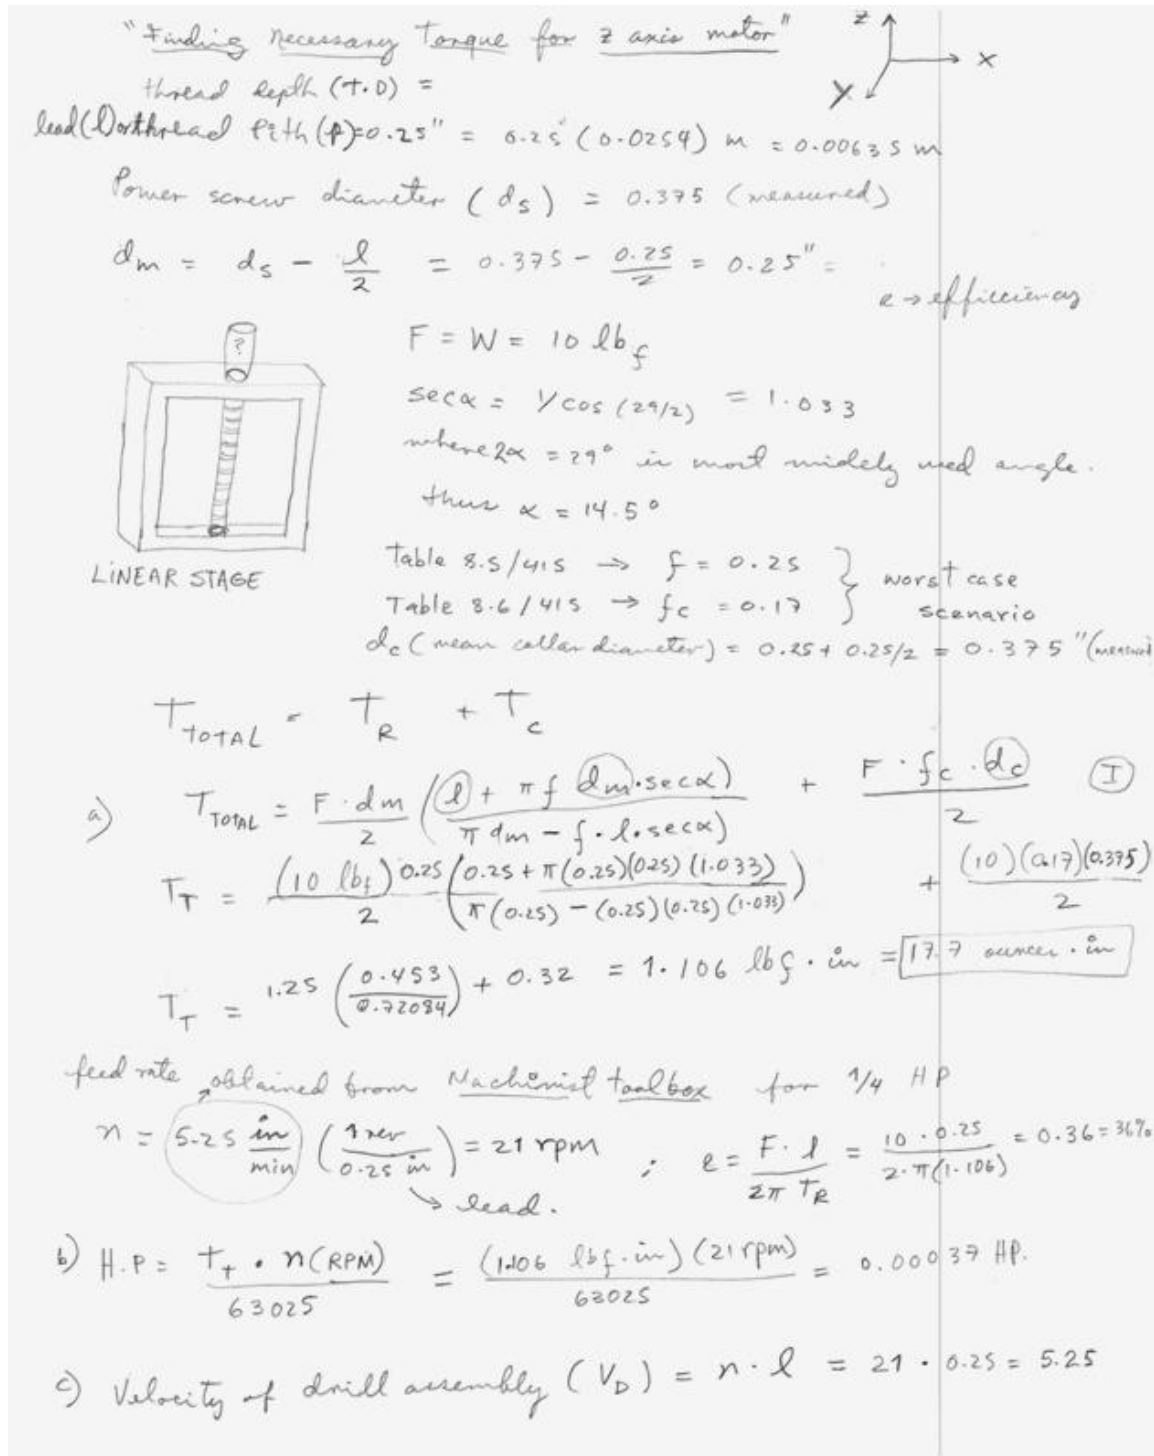 "Finding necessary Torque for z axis motor"
z
x
y
thread depth (T.D) =
lead(l) or thread Pith (p)=0.25" = 0.25 (0.0254) m = 0.00635 m
Power screw diameter (ds) = 0.375 (measured)
dm = ds - l/2 = 0.375 - 0.25/2 = 0.25" =
e → efficiency
F = W = 10 lbf
secα = 1/cos (29/2) = 1.033
where 2α = 29° is most widely used angle.
thus α = 14.5°
?
LINEAR STAGE
Table 8.5/415 → f = 0.25
Table 8.6/415 → fc = 0.17
} worst case scenario
dc (mean collar diameter) = 0.25 + 0.25/2 = 0.375" (measured
T TOTAL = TR + Tc
a) T TOTAL = F·dm/2 (l + π f dm·secα / π dm - f·l·secα) + F·fc·dc/2 (I)
TT = (10 lbf) 0.25/2 (0.25 + π(0.25)(0.25)(1.033) / π(0.25) - (0.25)(0.25)(1.033)) + (10)(0.17)(0.375)/2
TT = 1.25 (0.453/0.72084) + 0.32 = 1.106 lbf·in = 17.7 ounces·in
feed rate obtained from Machinist toolbox for 1/4 HP
n = 5.25 in/min (1 rev/0.25 in) = 21 rpm ; e = F·l/2π TR = 10·0.25/2·π(1.106) = 0.36 = 36%
→ lead.
b) H.P = T+ • n(RPM)/63025 = (1.106 lbf·in) (21 rpm)/63025 = 0.00037 HP.
c) Velocity of drill assembly (VD) = n·l = 21 · 0.25 = 5.25